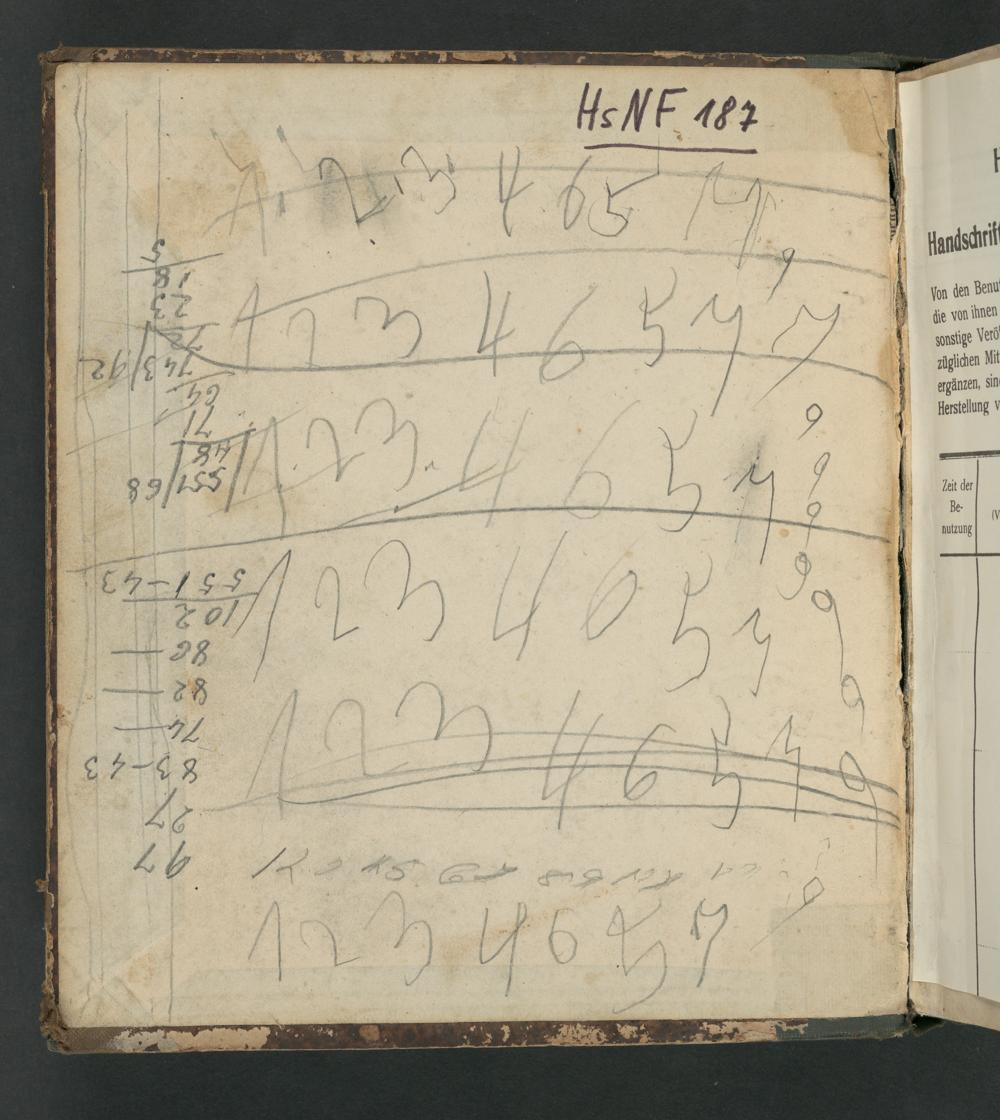 HsNF 187
1. 2 3 4 6 5 7
9
1 2 3 4 6 5 7 7
9
1. 2 3. 4 6 5 7 9
9
9
1 2 3 4 6 5 7 9
9
1 2 3 4 6 5 7 9
1 2 3 4 6 5 7 9
97
27
83-43
74 —
82 —
86 —
102
551-43
551/68
48
71
64
74 3/92
72
23
18
5
H
Handschrift
Von den Benu
die von ihnen
sonstige Verö
züglichen Mit
ergänzen, sin
Herstellung v
Zeit der
Be-
nutzung
(V